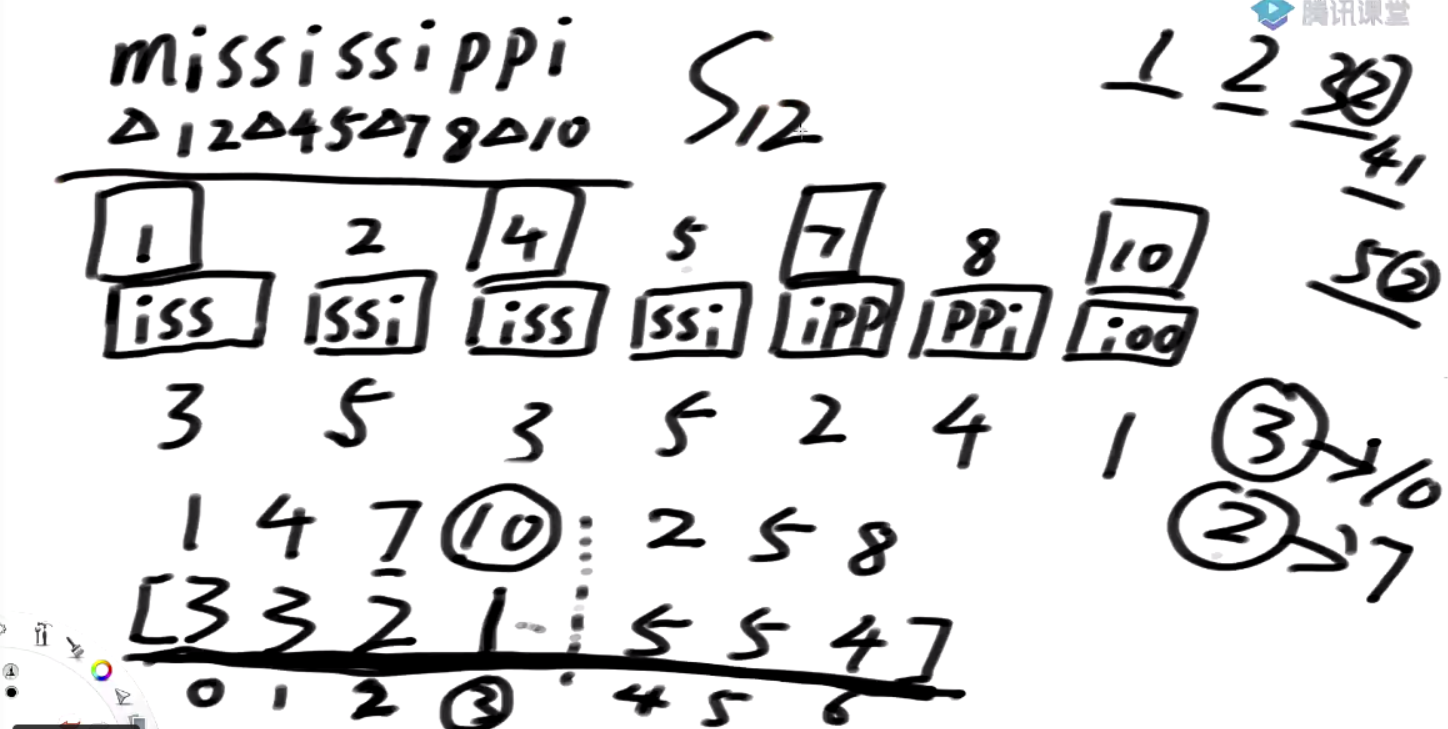 腾讯课堂
mississippi
Δ 1 2 Δ 4 5 Δ 7 8 Δ 10
S12
1 2 3②
41
5②
1 2 4 5 7 8 10
iss ssi iss ssi ipp ppi i00
3 5 3 5 2 4 1
③→10
②→7
1 4 7 ⑩ 2 5 8
[3 3 2 1 5 5 4]
0 1 2 ③ 4 5 6